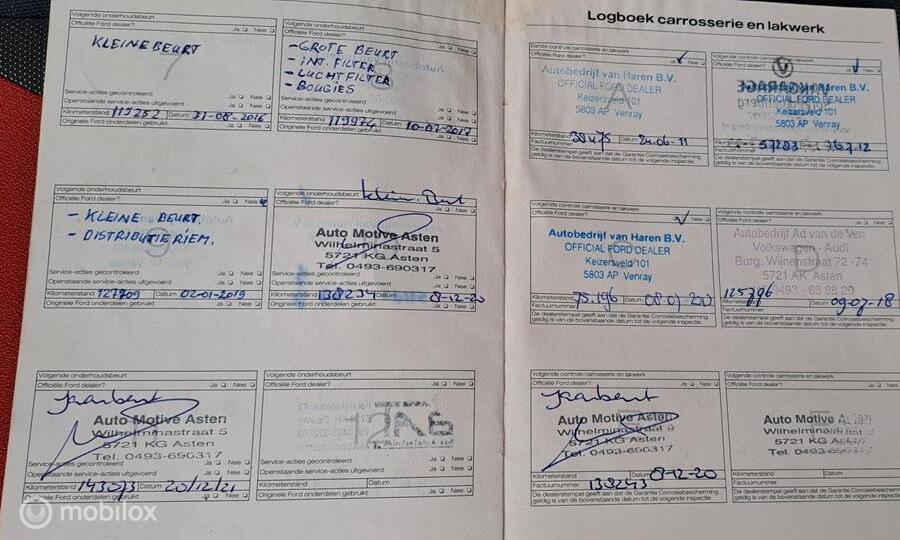 Volgende onderhoudsbeurt
Officiële Ford dealer? Ja Nee
KLEINE BEURT
Service-acties gecontroleerd Ja Nee
Openstaande service-acties uitgevoerd Ja Nee
Kilometerstand 113252 Datum 31-08-2016
Originele Ford onderdelen gebruikt Ja Nee
Volgende onderhoudsbeurt
Officiële Ford dealer? Ja Nee
- GROTE BEURT
- INT. FILTER
- LUCHTFILTER
- BOUGIES
Service-acties gecontroleerd Ja Nee
Openstaande service-acties uitgevoerd Ja Nee
Kilometerstand 119974 Datum 10-07-2017
Originele Ford onderdelen gebruikt Ja Nee
Volgende onderhoudsbeurt
Officiële Ford dealer? Ja Nee
- KLEINE BEURT
- DISTRIBUTIERIEM.
Service-acties gecontroleerd Ja Nee
Openstaande service-acties uitgevoerd Ja Nee
Kilometerstand 127709 Datum 02-01-2019
Originele Ford onderdelen gebruikt Ja Nee
Volgende onderhoudsbeurt
Officiële Ford dealer? Ja Nee
Auto Motive Asten
Wilhelminastraat 5
5721 KG Asten
Tel. 0493-690317
Service-acties gecontroleerd Ja Nee
Openstaande service-acties uitgevoerd Ja Nee
Kilometerstand 138234 Datum 8-12-20
Originele Ford onderdelen gebruikt Ja Nee
Volgende onderhoudsbeurt
Officiële Ford dealer? Ja Nee
Auto Motive Asten
Wilhelminastraat 5
5721 KG Asten
Tel. 0493-690317
Service-acties gecontroleerd Ja Nee
Openstaande service-acties uitgevoerd Ja Nee
Kilometerstand 143073 Datum 20/12/21
Originele Ford onderdelen gebruikt Ja Nee
Volgende onderhoudsbeurt
Officiële Ford dealer? Ja Nee
Service-acties gecontroleerd Ja Nee
Openstaande service-acties uitgevoerd Ja Nee
Kilometerstand Datum
Originele Ford onderdelen gebruikt Ja Nee
Logboek carrosserie en lakwerk
Eerste controle carrosserie en lakwerk
Officiële Ford dealer? Ja Nee
Autobedrijf van Haren B.V.
OFFICIAL FORD DEALER
Keizersveld 101
5803 AP Venray
Kilometerstand 38475 Datum 24-06-11
Factuurnummer
De dealerstempel geeft aan dat de Garantie Corrosiebescherming
geldig is van de bovenstaande datum tot de volgende inspectie.
Volgende controle carrosserie en lakwerk
Officiële Ford dealer? Ja Nee
Autobedrijf van Haren B.V.
OFFICIAL FORD DEALER
Keizersveld 101
5803 AP Venray
Kilometerstand 57283
Factuurnummer
De dealerstempel geeft aan dat de Garantie Corrosiebescherming
geldig is van de bovenstaande datum tot de volgende inspectie.
Volgende controle carrosserie en lakwerk
Officiële Ford dealer? Ja Nee
Autobedrijf van Haren B.V.
OFFICIAL FORD DEALER
Keizersveld 101
5803 AP Venray
Kilometerstand 75.196 Datum
Factuurnummer
De dealerstempel geeft aan dat de Garantie Corrosiebescherming
geldig is van de bovenstaande datum tot de volgende inspectie.
Volgende controle carrosserie en lakwerk
Officiële Ford dealer? Ja Nee
Autobedrijf Ad van de Ven
Volkswagen - Audi
Burg. Wijnenstraat 72 -74
5721 AK Asten
0493 - 68 88 20
125796
Kilometerstand 09-07-18
Factuurnummer
De dealerstempel geeft aan dat de Garantie Corrosiebescherming
geldig is van de bovenstaande datum tot de volgende inspectie.
Volgende controle carrosserie en lakwerk
Officiële Ford dealer? Ja Nee
Auto Motive Asten
Wilhelminastraat 5
5721 KG Asten
Tel. 0493-690317
Kilometerstand 8-12-20
Factuurnummer 138243
De dealerstempel geeft aan dat de Garantie Corrosiebescherming
geldig is van de bovenstaande datum tot de volgende inspectie.
Volgende controle carrosserie en lakwerk
Officiële Ford dealer?
Auto Motive Asten
Wilhelminastraat
5721 KG Asten
Tel. 0493-6903
Kilometerstand
Factuurnummer
De dealerstempel geeft aan dat de Garantie
geldig is van de bovenstaande datum tot de volgende
mobilox